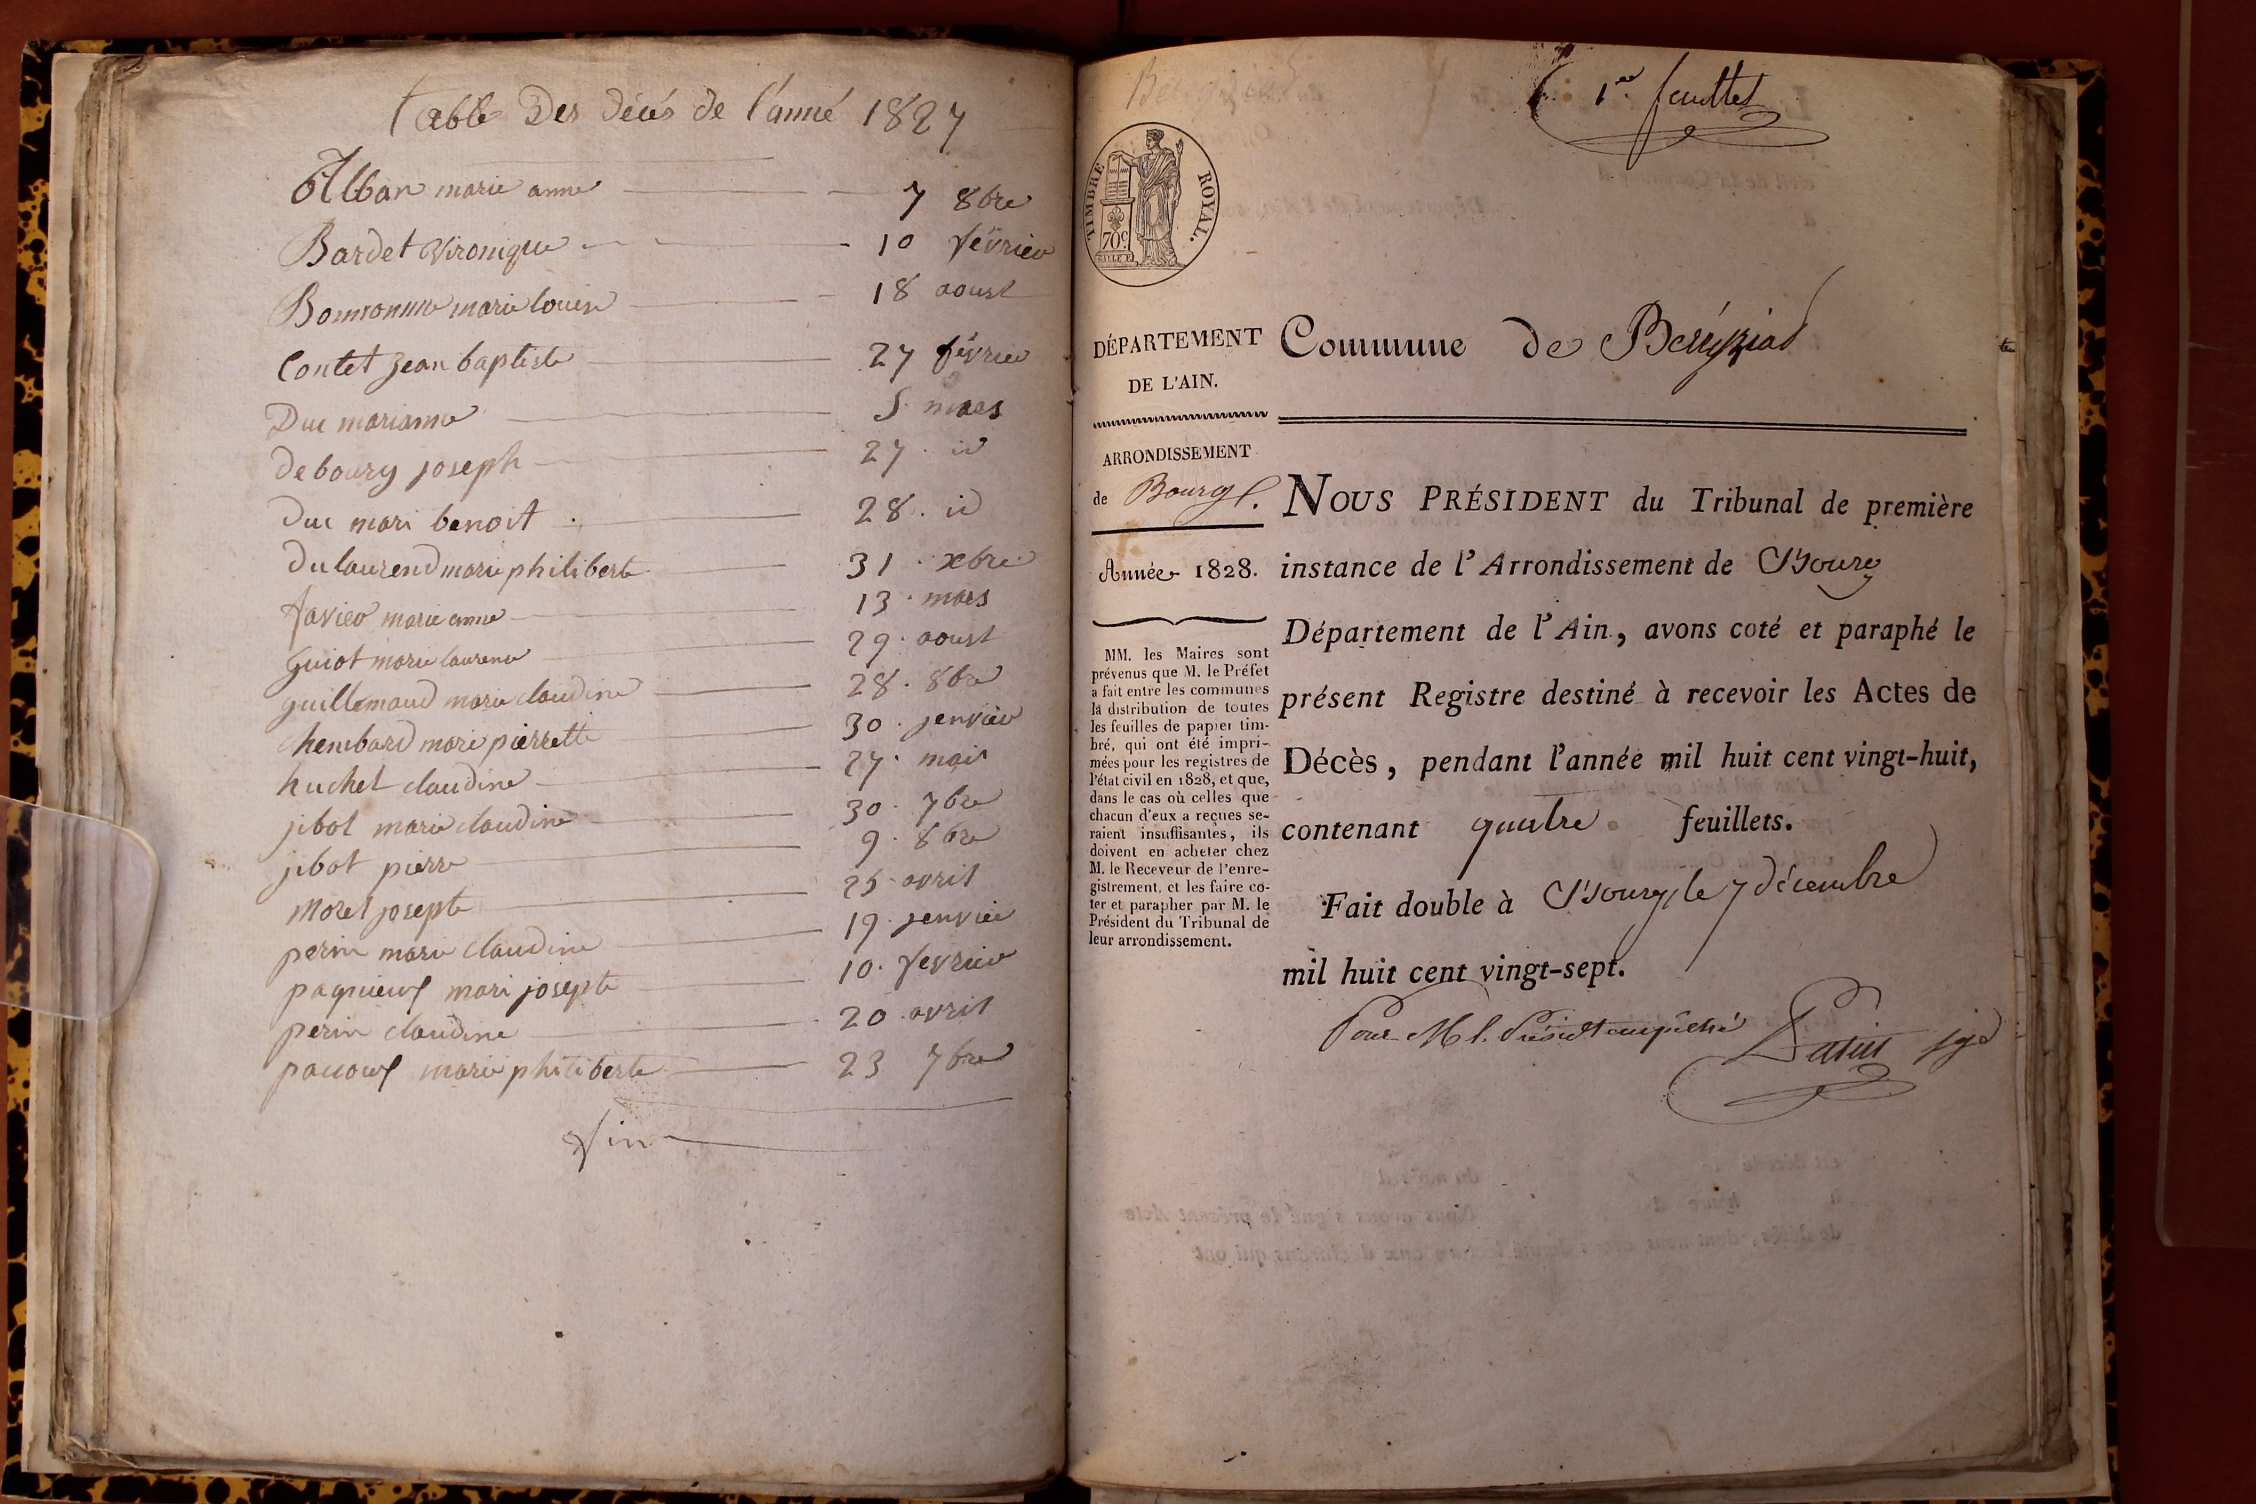 table Des décés de l'anné 1827
Alban marie anne 7 8bre
Bardet Vironique 10 février
Bonnonne marie louise 18 aoust
Contet Jean baptiste 27 février
Duc marianne 5 mars
debourg joseph 27 id
duc mari benoit 28 id
dulaurend marie philiberte 31 xbre
favier marie anne 13 mars
guiot marie laurence 29 aoust
guillemaud marie claudine 28 8bre
hembard marie pierrette 30 jenvier
huchet claudine 27 mais
jibot marie claudine 30 7bre
jibot pierre 9 8bre
morel josepte 25 avril
perin marie claudine 19 jenvier
mari josepte 10 fevrier
perin claudine 20 avril
marie philiberte 23 7bre
fin
1er feuillet
TIMBRE ROYAL.
70c
DÉPARTEMENT
DE L'AIN.
Commune de Béréyziat
ARRONDISSEMENT
de Bourg.
Année 1828.
MM. les Maires sont
prévenus que M. le Préfet
a fait entre les communes
la distribution de toutes
les feuilles de papier tim-
bré, qui ont été impri-
mées pour les registres de
l'état civil en 1828, et que,
dans le cas où celles que
chacun d'eux a reçues se-
raient insuffisantes, ils
doivent en acheter chez
M. le Receveur de l'enre-
gistrement, et les faire co-
ter et parapher par M. le
Président du Tribunal de
leur arrondissement.
NOUS PRÉSIDENT du Tribunal de première
instance de l'Arrondissement de Bourg
Département de l'Ain, avons coté et paraphé le
présent Registre destiné à recevoir les Actes de
Décès, pendant l'année mil huit cent vingt-huit,
contenant quatre feuillets.
Fait double à Bourg, le 7 décembre
mil huit cent vingt-sept.
Pour M l. Présidt empêché